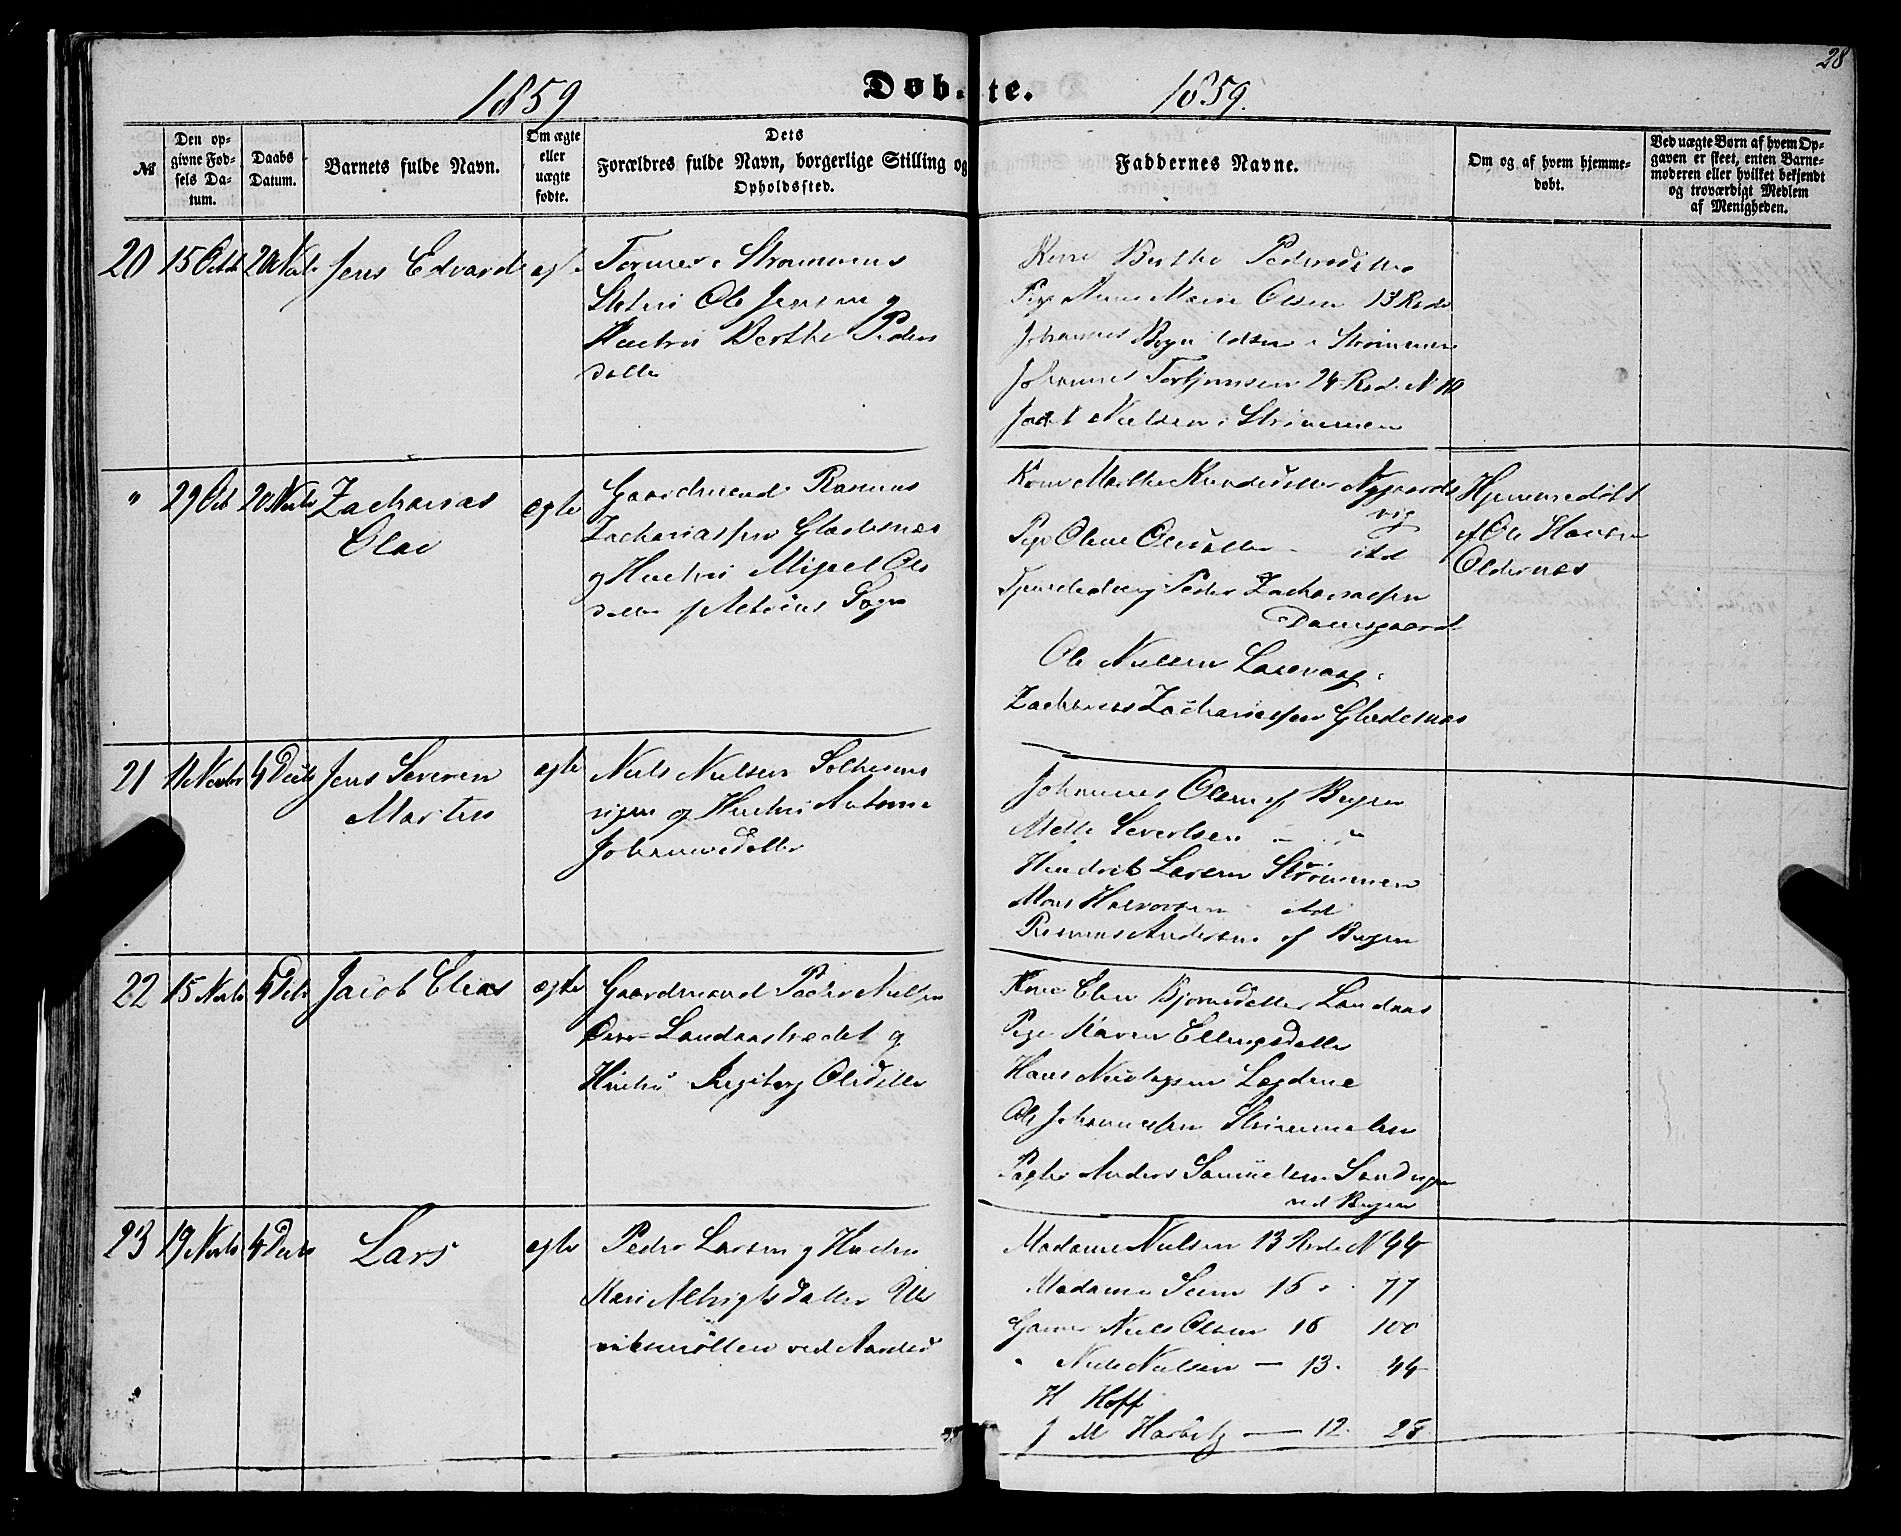 28
1859 Døbte. 1859.
№
Den opgivne Fødsels Datum.
Daabs Datum.
Barnets fulde Navn.
Om ægte eller uægte fødte.
Dets Forældres fulde Navn, borgerlige Stilling og Opholdssted.
Faddernes Navne.
Om og af hvem hjemmedøbt.
Ved uægte Børn af hvem Opgaven er skeet, enten Barnemoderen eller hvilket bekjendt og troværdigt Medlem af Menigheden.
20 15 Octb 20 Novb Jens Edvard egte
Former i Strømmens
Ole Jensen og
Hustru Berthe Peders
datter
Kone Berthe Pedersdatter
Pige Anne Marie Olsen 13 Rode
Johannes i Strømmen
Johannes Torbjørnsen 24 Rod. N 10
Nielsen i Strømmen
" 29 Oct 20 Novb Zacharias
Olai
egte
Gaardmand Rasmus
Zachariassen Gladesnæs
og Hustru Ols
datter Sogn
Kone Marthe Knudsdatter Nygaards
vig
Pige Oline Olsdatter - ibd
Peder Zachariassen
Damsgaard
Ole Nielsen Laxevaag
Zacharias Zachariassen Gladesnæs
Hjemmedøbt
af Ole Hansen
Oldernæs
21 11 Novbr 4 Decb Jens Severin
Martin
egte
Niels Nielsen Solheims
vigen og Hustru Antone
Johannesdatter
Johannes Olsen af Bergen
Mette Severtsen - "
Hendrik Larsen Strømmen
Mons Halvorsen ibd
Rasmus Andersen af Bergen
22 15 Novb 4 Decb Jacob Elias egte
Gaardmand Peder Nielsen
Øvre Landaastrædet og
Hustru Ingeborg Olsdatter
Kone Elen Bjørnsdatter Landaas
Pige Karen Ellingsdatter
Hans Lægdene
Ole Johannessen
Anders Samuelsen Sandvigen
ved Bergen
23 19 Novb 4 Decb Lars egte
Peder Larsen og Hustru
Kari datter Ul
riksmøllen ved Aarstad
Madame Nielsen 13 Rode N 44
Madame Seim 16 " 77
Niels Olsen 16 100
" Niels Nielsen — 13. 44
H Hoff
J M Harbitz — 12. 25